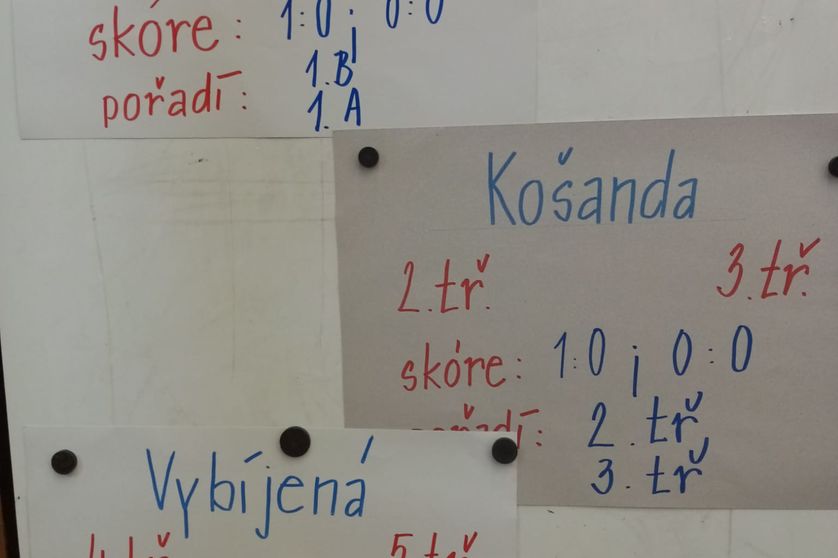 skóre: 1:0 ; 0:0
pořadí: 1. B
1. A
Košanda
2. tř. 3. tř.
skóre: 1:0 ; 0:0
pořadí: 2. tř,
3. tř
Vybíjená
4. tř 5. tř